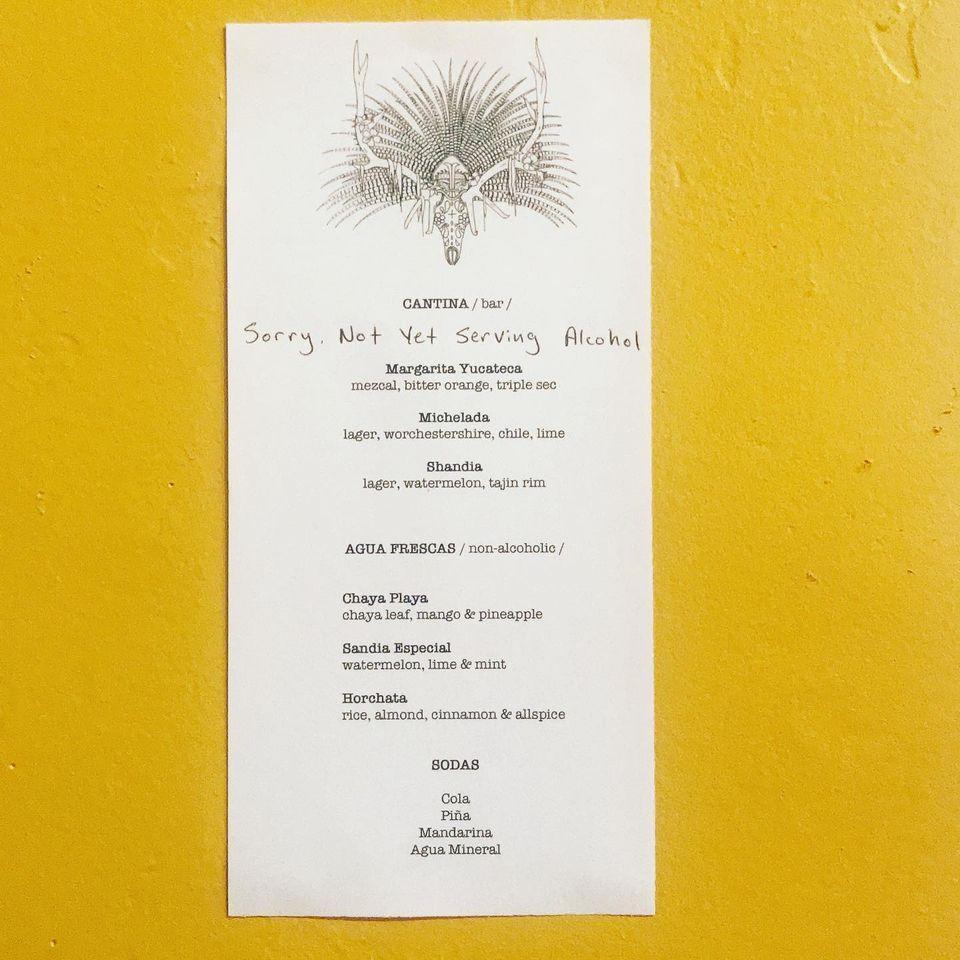 CANTINA / bar /
Sorry. Not Yet Serving Alcohol
Margarita Yucateca
mezcal, bitter orange, triple sec
Michelada
lager, worchestershire, chile, lime
Shandia
lager, watermelon, tajin rim
AGUA FRESCAS / non-alcoholic /
Chaya Playa
chaya leaf, mango & pineapple
Sandia Especial
watermelon, lime & mint
Horchata
rice, almond, cinnamon & allspice
SODAS
Cola
Piña
Mandarina
Agua Mineral